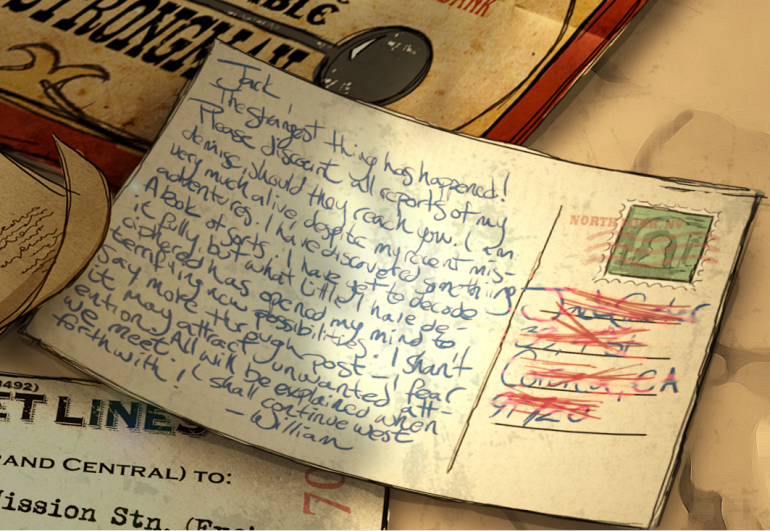 STRONGMAN
Jack,
The strangest thing has happened!
Please discount all reports of my
demise, should they reach you. I am
very much alive despite my recent mis-
adventures. I have discovered something
A book of sorts. I have yet to decode
it fully, but what little I have de-
ciphered has opened my mind to
terrifying new possibilities. I shan't
say more through post - I fear
it may attract unwanted att-
ention. All will be explained when
we meet. I shall continue west
forthwith!
- William
NORTH
CA
0492)
ET LINES
RAND CENTRAL) TO:
ission Stn.
70